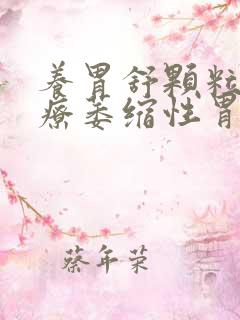 養胃舒顆粒
療萎缩性胃
蔡年荣